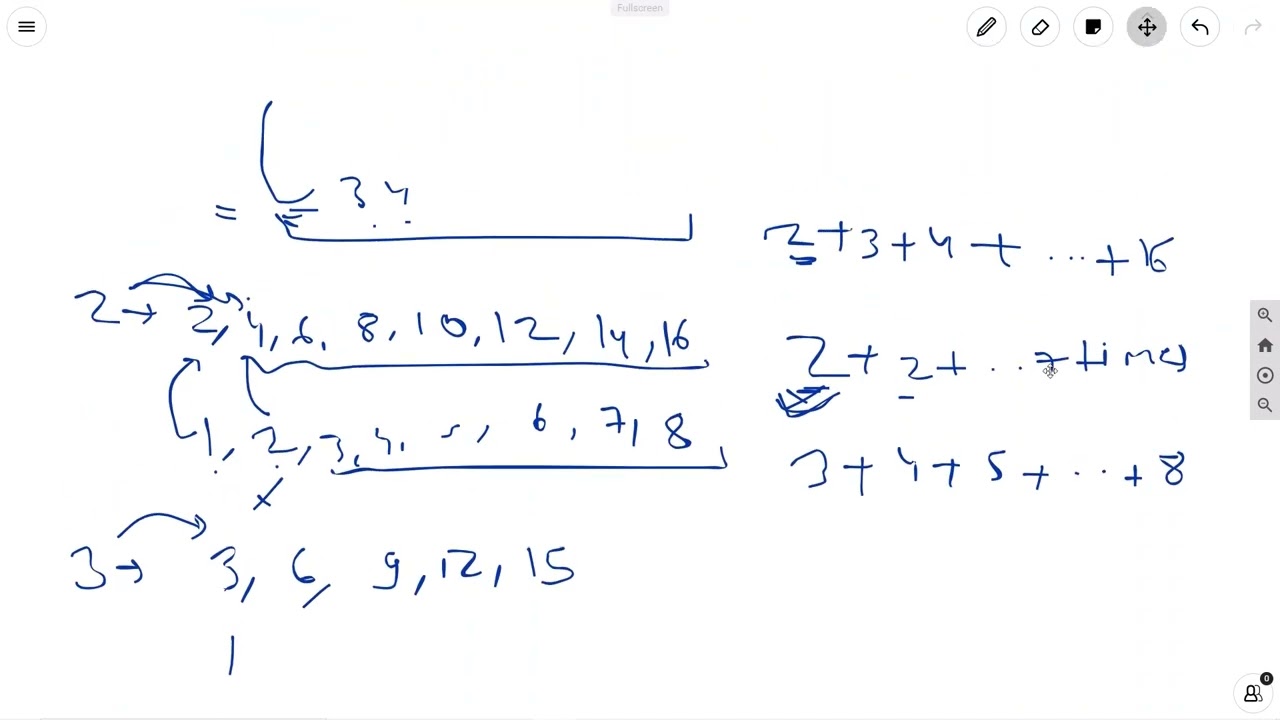 Fullscreen
= 3 4
2 + 3 + 4 + ... + 16
2 → 2, 4, 6, 8, 10, 12, 14, 16
2 + 2 + .. 7 times
1, 2, 3, 4, 5, 6, 7, 8
3 + 4 + 5 + .. + 8
3 → 3, 6, 9, 12, 15
1
0